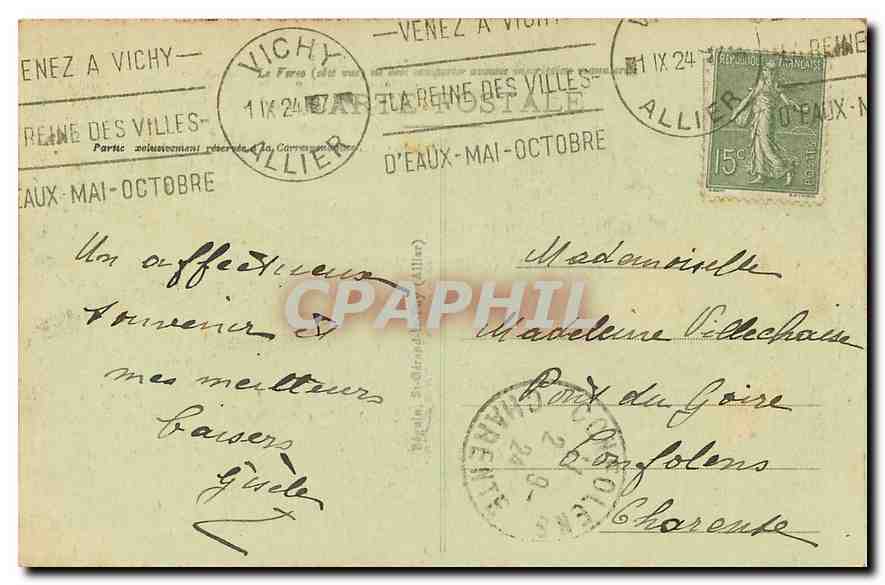 VENEZ A VICHY
REINE DES VILLES
EAUX-MAI-OCTOBRE
VICHY
1 IX 24
ALLIER
VENEZ A VICHY
LA REINE DES VILLES
D'EAUX-MAI-OCTOBRE
1 IX 24
ALLIER
REINE
D'EAUX-M
CARTE POSTALE
Partie exclusivement réservée à la Correspondance.
REPUBLIQUE FRANÇAISE
15c
POSTES
Un affectueux
souvenir &
mes meilleurs
baisers
Gisèle
Béguin, St-Gérand (Allier)
CPAPHIL
Mademoiselle
Madeleine Villechaise
Pont du Goire
Confolens
Charente
CONFOLENS
2-9
24
CHARENTE